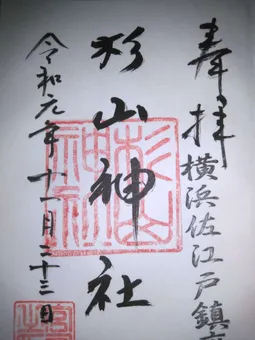 奉拝
横浜佐江戸鎮守
杉山神社
令和元年十一月二十三日
杉山神社